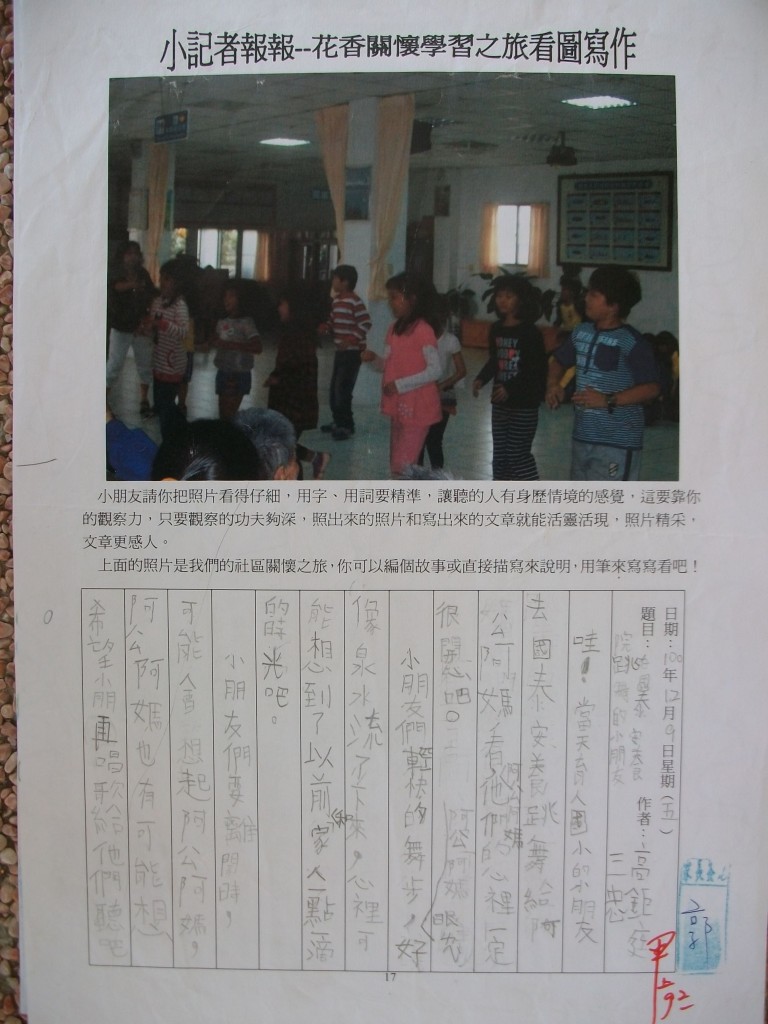 小記者報報--花香關懷學習之旅看圖寫作
小朋友請你把照片看得仔細，用字、用詞要精準，讓聽的人有身歷情境的感覺，這要靠你
的觀察力，只要觀察的功夫夠深，照出來的照片和寫出來的文章就能活靈活現，照片精采，
文章更感人。
上面的照片是我們的社區關懷之旅，你可以編個故事或直接描寫來說明，用筆來寫寫看吧！
日期：100年12月9日星期（五）
題目：
院跳舞的小朋友
作者：高鉅
三忠
哇！當天育人國小的小朋友
去國泰安養跳舞給阿
公阿媽看他們的心裡一定
阿公阿媽
很開心吧。
阿公阿媽眼
小朋友們輕快的舞步，好
像泉水流了下來，心裡可
能想到了以前和家人一點一滴
的時光吧。
小朋友們要離開時，
可能會想起阿公阿媽，
阿公阿媽也有可能想
希望小朋再唱歌給他們聽吧
郭
甲
92
17